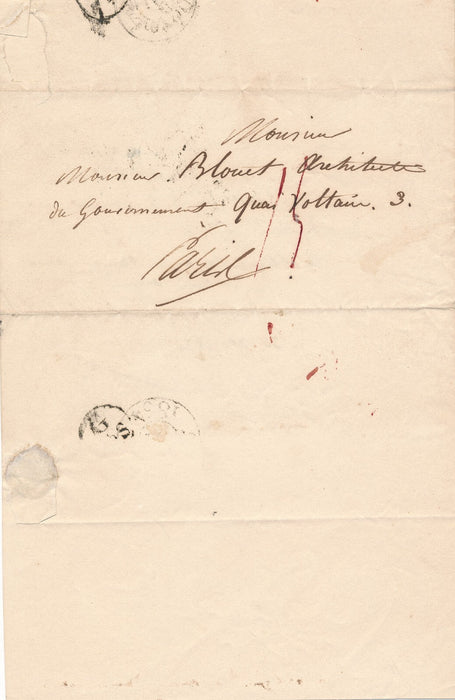 Monsieur
Monsieur Blouet Architecte
du Gouvernement Quai Voltaire. 3.
à
Paris.